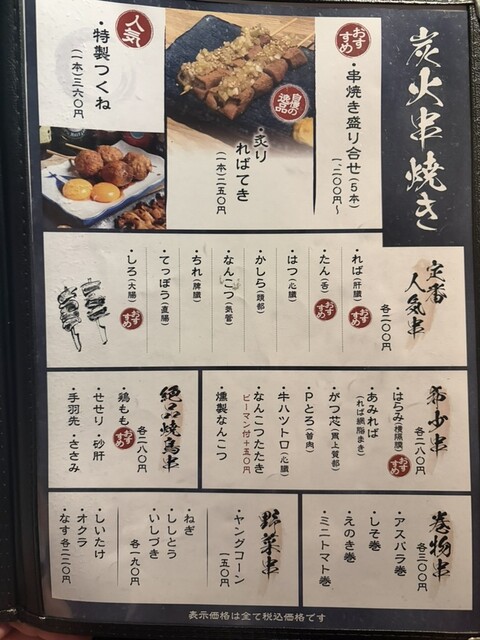 炭火串焼き
おすすめ
・串焼き盛り合せ(5本)
一、二〇〇円〜
自慢の逸品
・炙り
ればてき
(一本)二五〇円
人気
・特製つくね
(一本)三六〇円
定番人気串
各二〇〇円
・れば(肝臓) おすすめ
・たん(舌) おすすめ
・はつ(心臓)
・かしら(頭部)
・なんこつ(気管)
・ちれ(脾臓)
・てっぽう(直腸)
・しろ(大腸) おすすめ
希少串
各二八〇円
・はらみ(横隔膜) おすすめ
・あみれば
(れば網脂まき)
・がつ芯(胃上質部)
・Pとろ(首肉)
・牛ハツトロ(心臓)
・なんこつたたき
ピーマン付+五〇円
・燻製なんこつ
絶品焼鳥串
各二八〇円
・鶏もも おすすめ
・せせり・砂肝
・手羽先・ささみ
巻物串
各三〇〇円
・アスパラ巻
・しそ巻
・えのき巻
・ミニトマト巻
野菜串
・ヤングコーン
一五〇円
・ねぎ
・ししとう
・いしづき
各一九〇円
・しいたけ
・オクラ
・なす 各二二〇円
表示価格は全て税込価格です